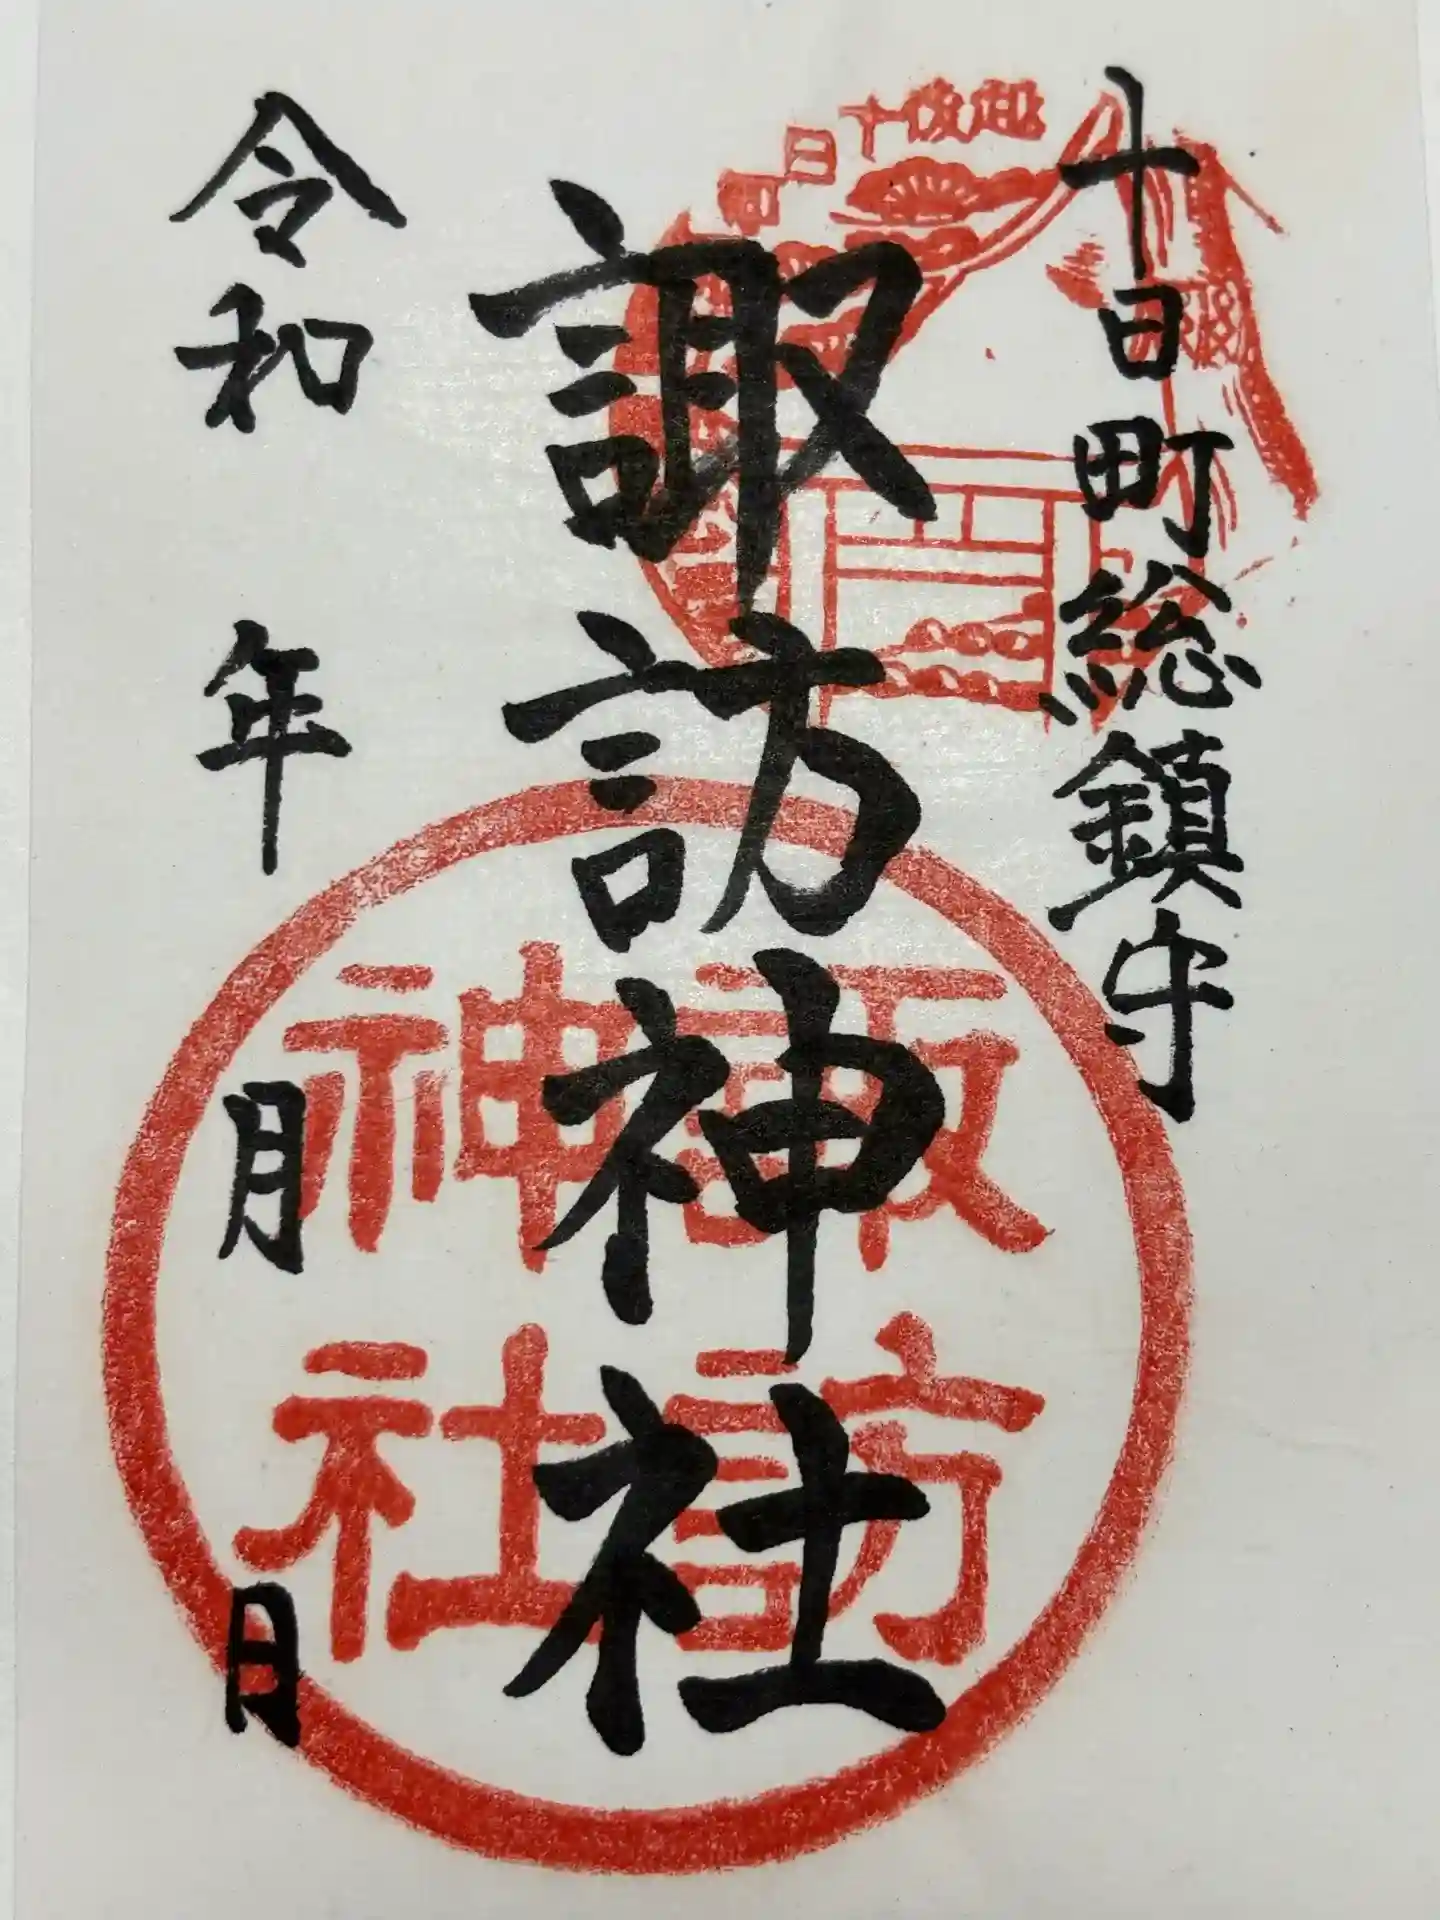 十日町総鎮守
越後十日町
諏訪神社
諏訪神社
令和 年 月 日